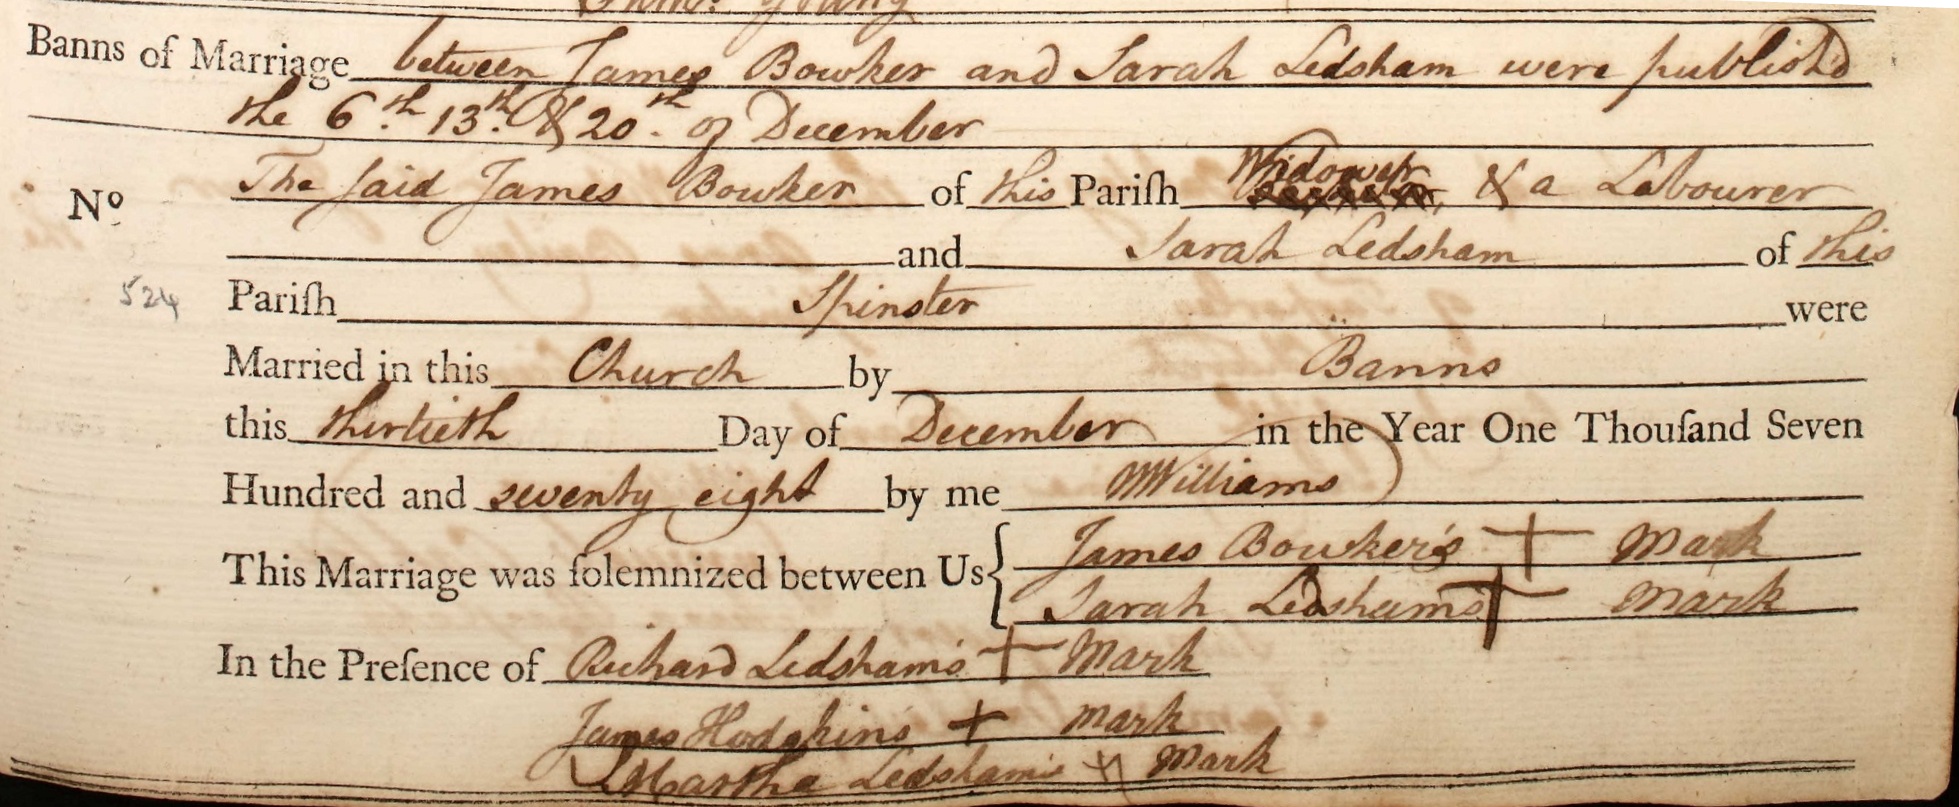 Young
Banns of Marriage between James Bowker and Sarah Ledsham were publish'd
the 6.th 13.th & 20.th of December
Nº The said James Bowker of this Pariſh Widower & a Labourer
and Sarah Ledsham of this
524 Pariſh Spinster were
Married in this Church by Banns
this thirtieth Day of December in the Year One Thouſand Seven
Hundred and seventy eight by me Williams
This Marriage was ſolemnized between Us { James Bowker's + Mark
Sarah Ledsham's + Mark
In the Preſence of Richard Ledsham's + Mark
James Hodgkin's + Mark
Martha Ledsham's + Mark